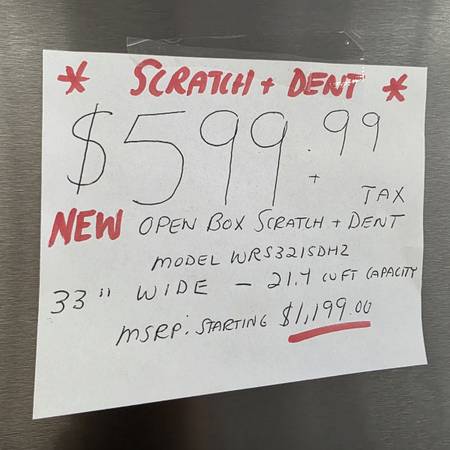 * SCRATCH + DENT *
$599.99
+ TAX
NEW OPEN BOX SCRATCH + DENT
MODEL WRS321SDHZ
33" WIDE - 21.4 CUFT CAPACITY
MSRP: STARTING $1,199.00